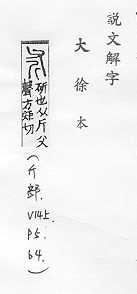 説文解字
大徐本
斧 斫也从斤父
聲方矩切
(斤部. V14上. P5. b4.)